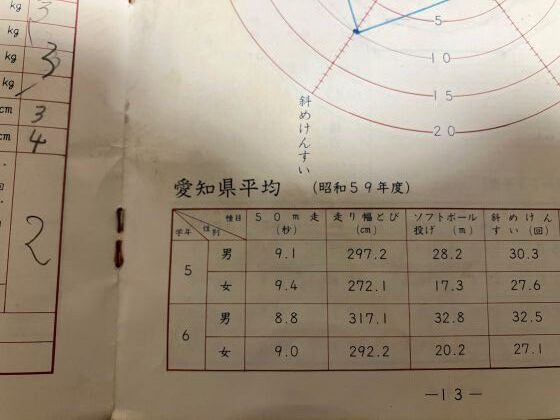 kg 3
kg
kg 3
kg
cm 3
cm 4
回
2
5
10
15
20
斜めけんすい
愛知県平均 (昭和59年度)
種目 性別 学年 50m走(秒) 走り幅とび(cm) ソフトボール投げ(m) 斜めけんすい(回)
5 男 9.1 297.2 28.2 30.3
女 9.4 272.1 17.3 27.6
6 男 8.8 317.1 32.8 32.5
女 9.0 292.2 20.2 27.1
—13—